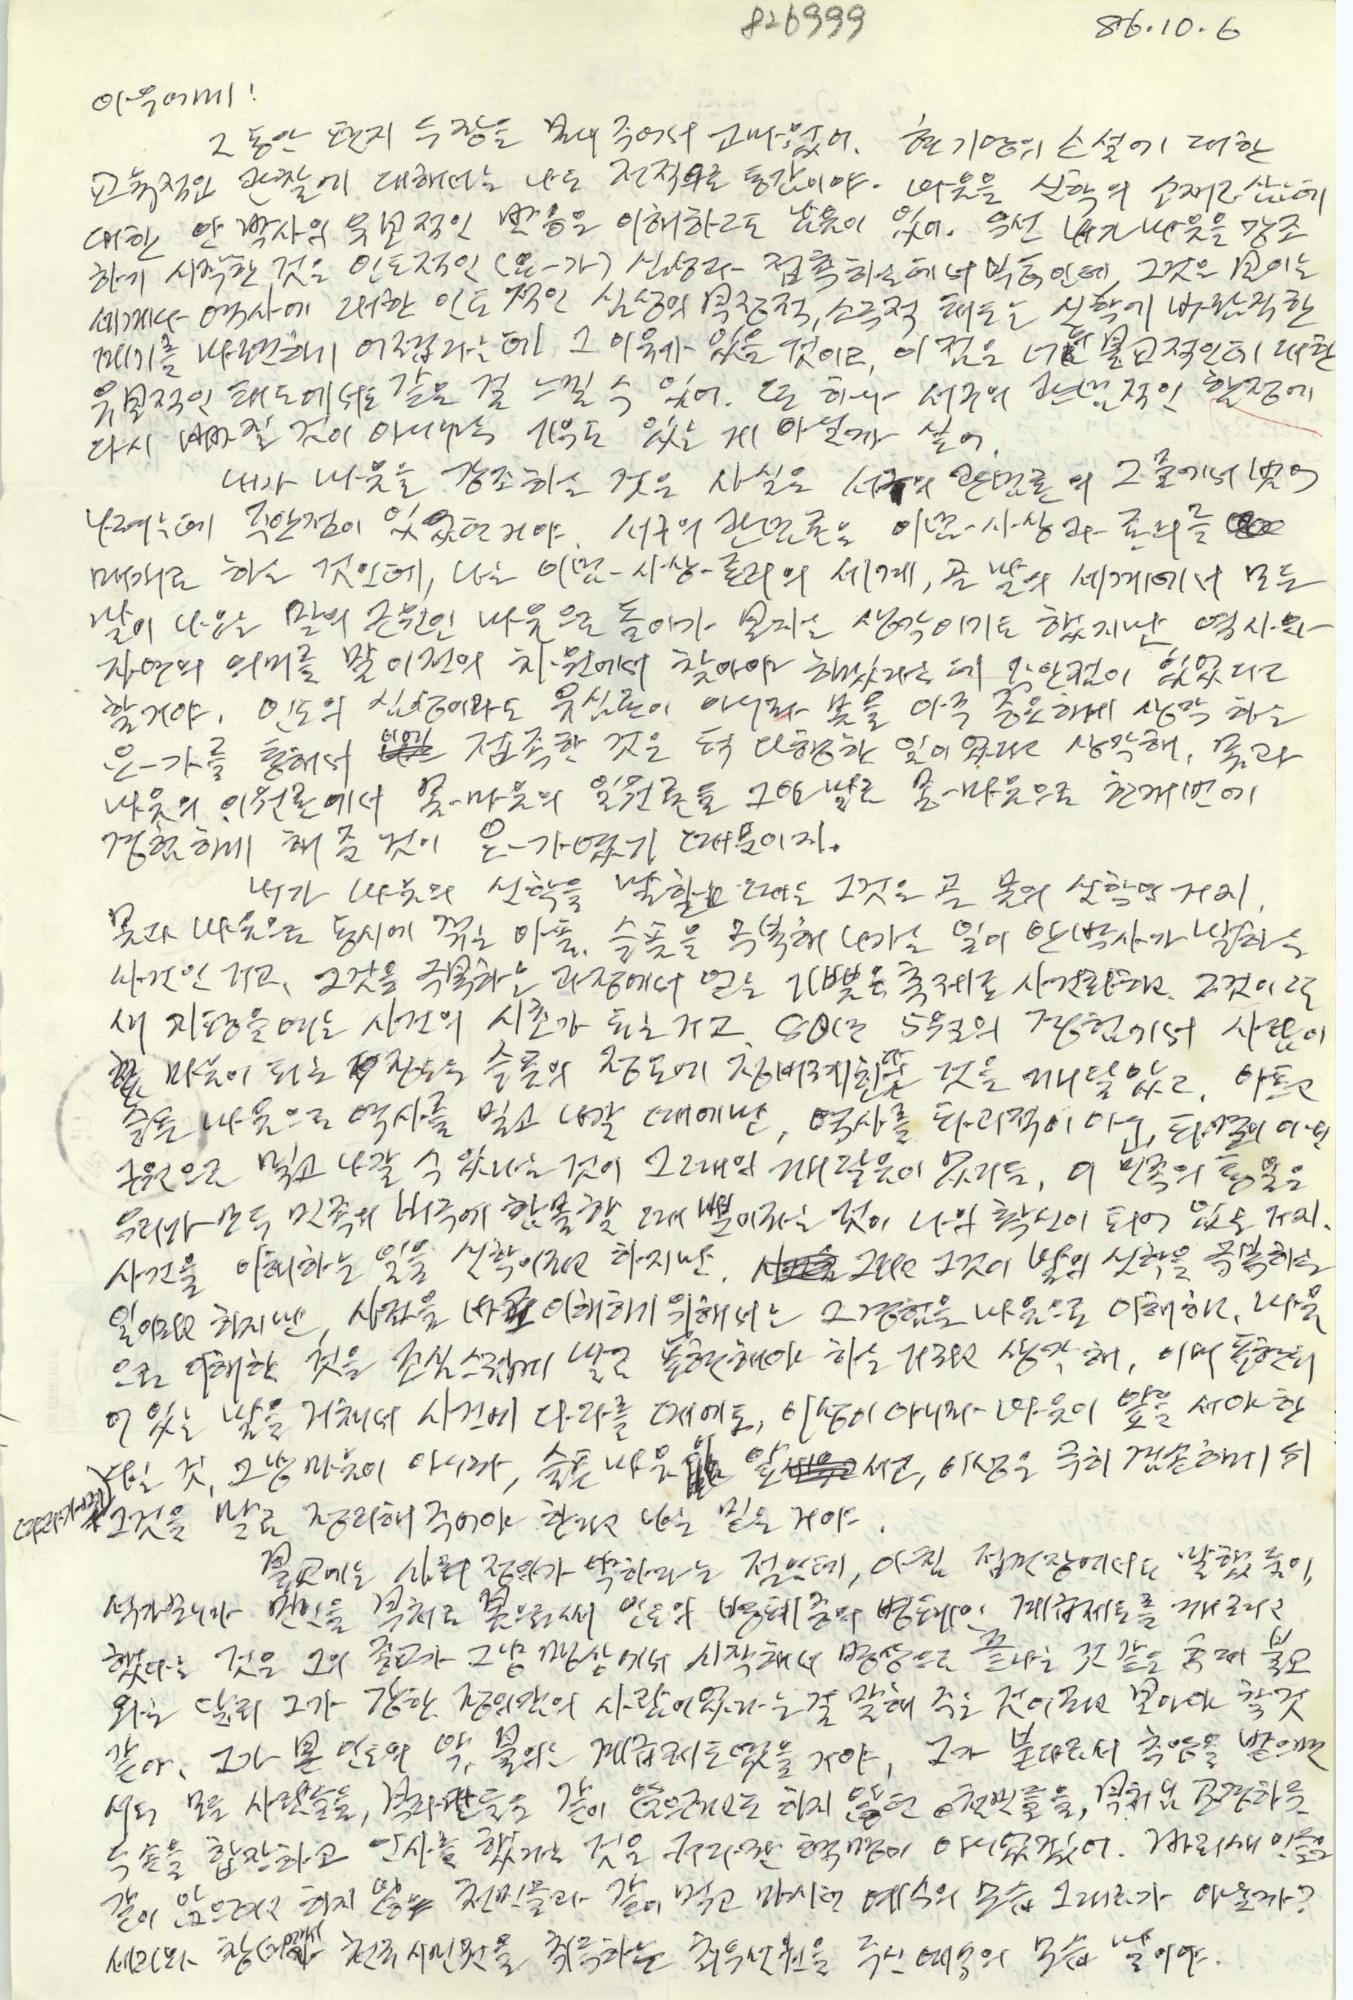 826999
86.10.6
아우에게!
그 동안 편지 두 장을 보내 주어서 고마웠어. 현기영의 소설에 대한
교육적인 관찰에 대해서는 나도 전적으로 동감이야. 마음을 신학의 소재로 삼는데
대한 안 박사의 유보적인 반응을 이해하고도 남음이 있어. 우선 내가 마음을 강조
하기 시작한 것은 인도적인 (요-가) 심성과 접촉하는데서 부터인데, 그것은 보이는
세계나 역사에 대한 인도적인 심성의 부정적, 소극적 태도는 신학에 바람직한
계기를 마련하기 어렵다는데 그 이유가 있을 것이고, 이 점은 불교적인데 대한
유보적인 태도에서도 같은 걸 느낄 수 있어. 또 하나 서구의 관념적인 함정에
다시 빠질 것이 아니냐는 기우도 있는 게 아닐까 싶어.
내가 마음을 강조하는 것은 사실은 서구의 관념론의 그물에서 벗어
나려는데 주안점이 있었던 거야. 서구의 관념론은 이념-사상과 논리를
매개로 하는 것인데, 나는 이념-사상-논리의 세계, 곧 말의 세계에서 모든
말이 나오는 말의 근원인 마음으로 돌아가 보자는 생각이기도 했지만 역사와
자연의 의미를 말 이전의 차원에서 찾아야 하겠다는데 주안점이 있었다고
할 거야. 인도의 심성이라도 유심론이 아니라 몸을 아주 중요하게 생각하는
요-가를 통해서 접촉한 것은 퍽 다행한 일이었다고 생각해. 몸과
마음의 이원론에서 몸-마음의 일원론을 그야말로 몸-마음으로 한꺼번에
경험하게 해 준 것이 요-가였기 때문이지.
내가 마음의 신학을 말할 때는 그것은 곧 몸의 신학인 거지.
몸과 마음으로 동시에 겪는 아픔, 슬픔을 극복해 나가는 일이 안박사가 말하는
사건인 거고, 그것을 극복하는 과정에서 얻는 기쁨을 축제로 사건화하고 그것이 또
새 지평을 여는 사건의 시초가 되는 거고. 80년 5월의 경험에서 사람이
마음이 되는 슬픔의 정도에 정비례한다는 것을 깨달았고, 아프고
슬픈 마음으로 역사를 밀고 나갈 때에만, 역사를 파괴적이 아닌, 타락이 아닌
구원으로 밀고 나갈 수 있다는 것이 그때의 깨달음이었거든. 이 민족의 통일은
우리가 모두 민족의 비극에 함몰할 때 뿐이라는 것이 나의 확신이 되어 있는 거지.
사건을 이해하는 일을 신학이라고 하지만, 그리고 그것이 말의 신학을 극복하는
일이라고 하지만, 사건을 바로 이해하기 위해서는 그 경험을 마음으로 이해하고, 마음
으로 이해한 것을 조심스럽게 말로 표현해야 하는 거라고 생각해. 이미 표현되
어 있는 말을 거쳐서 사건에 다다를 때에도, 이성이 아니라 마음이 앞을 서야 한
다는 것, 그냥 마음이 아니라, 슬픈 마음이 앞서고, 이성은 극히 겸손하게 뒤
(따라가면서) 그것을 말로 정리해 주어야 한다고 나는 믿는 거야.
불교에는 사회 정의가 약하다는 점인데, 아침 접견장에서도 말했듯이,
석가모니가 만인을 부처로 봄으로써 인도의 병폐 중의 병폐인 계급제도를 깨려고
했다는 것은 그의 종교가 그냥 명상에서 시작해서 명상으로 끝나는 것 같은 후대 불교
와는 달리 그가 강한 정의감의 사람이었다는 걸 말해 주는 것이라고 보아야 할 것
같아. 그가 본 인도의 악, 불의는 계급제도였을 거야. 그가 불타로서 추앙을 받으면
서도 모든 사람들을, 브라만들은 같이 앉으려고도 하지 않던 천민들을, 부처님 공경하듯
두 손을 합장하고 인사를 했다는 것은 굉장한 혁명이 아니었겠어. 바리새인들은
같이 앉으려고 하지 않는 천민들과 같이 먹고 마시던 예수의 모습 그대로가 아닐까?
세리와 창녀 천국 시민권을 취득하는 최우선권을 주신 예수의 모습 말이야.